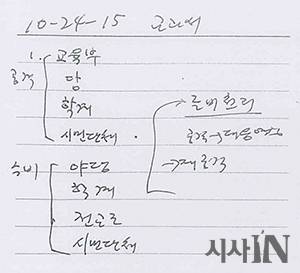 10-24-15 교과서
1. 교육부
공격 당
학계
시민단체
수비 야당
학계
전교조
시민단체
준비 논리
공격→대응영상
→재공격
시사IN